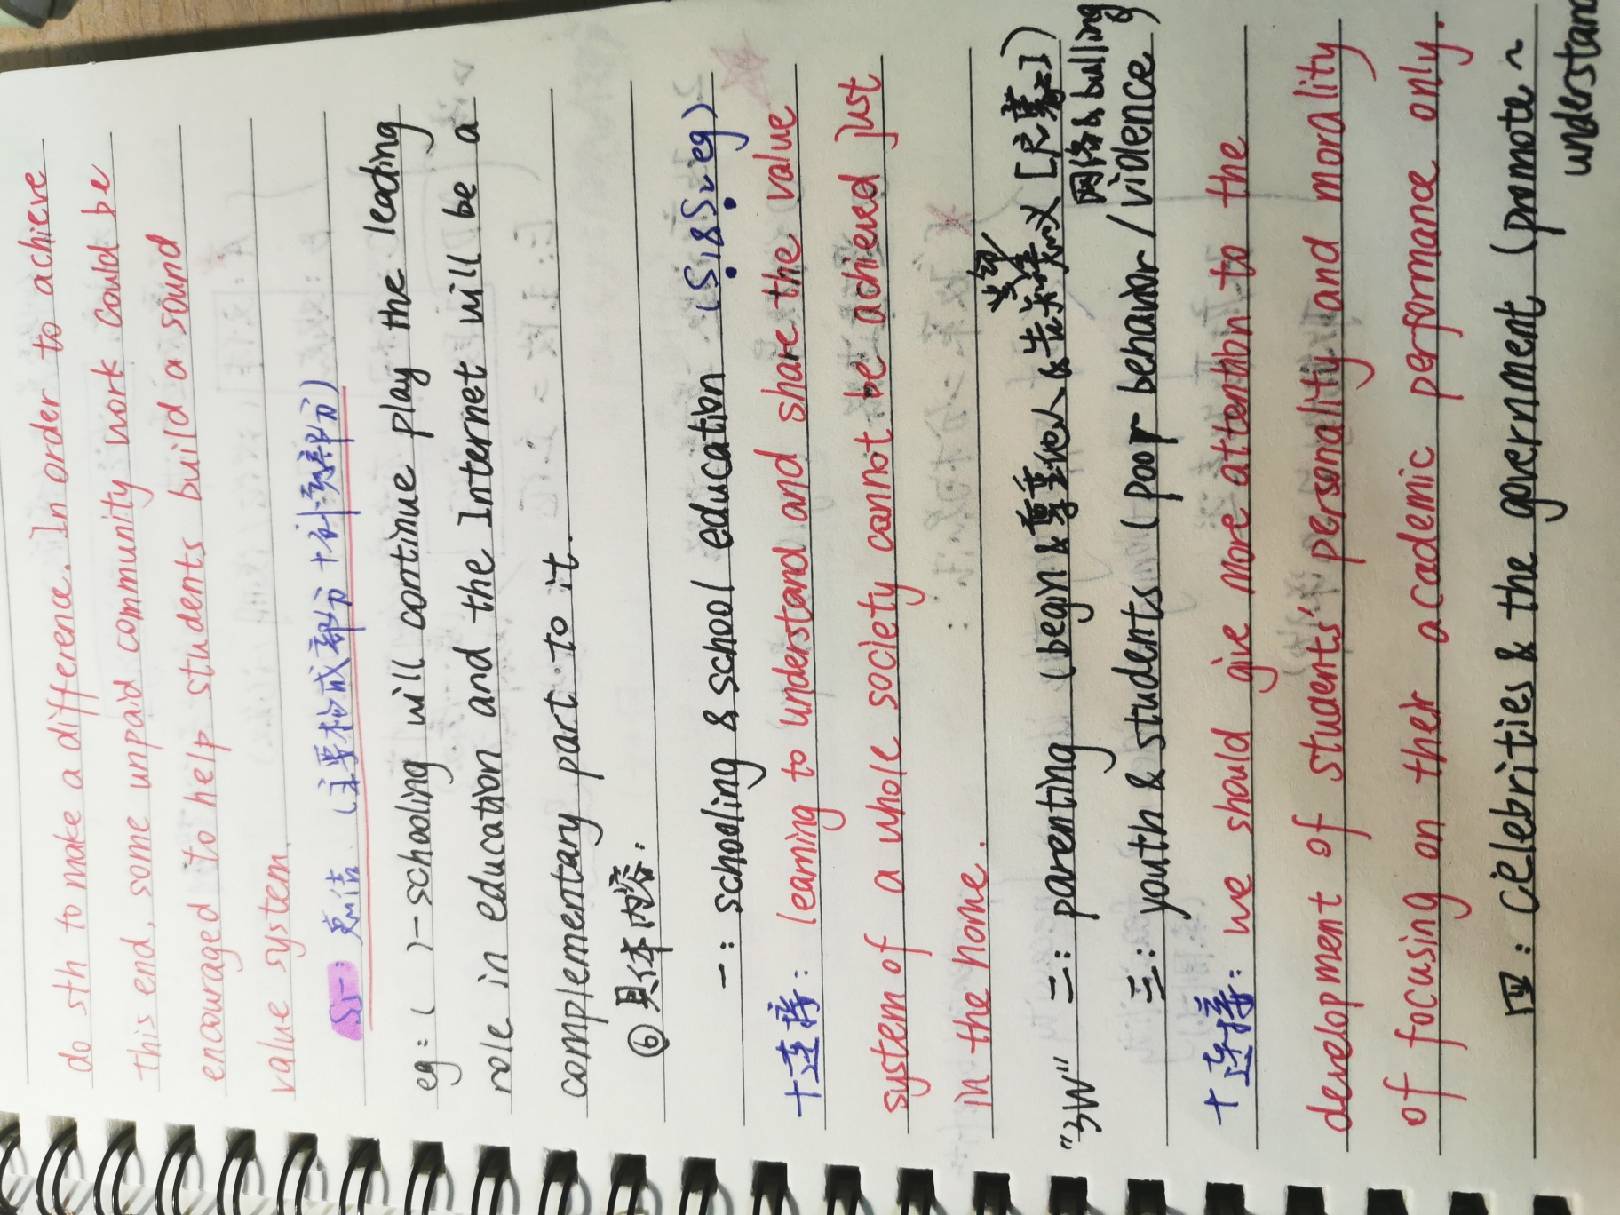 do sth to make a difference. In order to achieve
this end, some unpaid community work could be
encouraged to help students build a sound
value system.
S5: 总结 (主要构成部分+补充部分)
eg: ( )-schooling will continue play the leading
role in education and the Internet will be a
complementary part to it.
⑥ 具体内容:
一: schooling & school education (S1&S2 eg)
+连接: learning to understand and share the value
system of a whole society cannot be achieved just
in the home.
"3W" 二: parenting (begin & 尊重他人 &
三: youth & students (poor behavior / violence
网络 & bulling)
+连接: we should give more attention to the
development of students' personality and morality
of focusing on their academic performance only.
四: Celebrities & the government (promote ~
understand